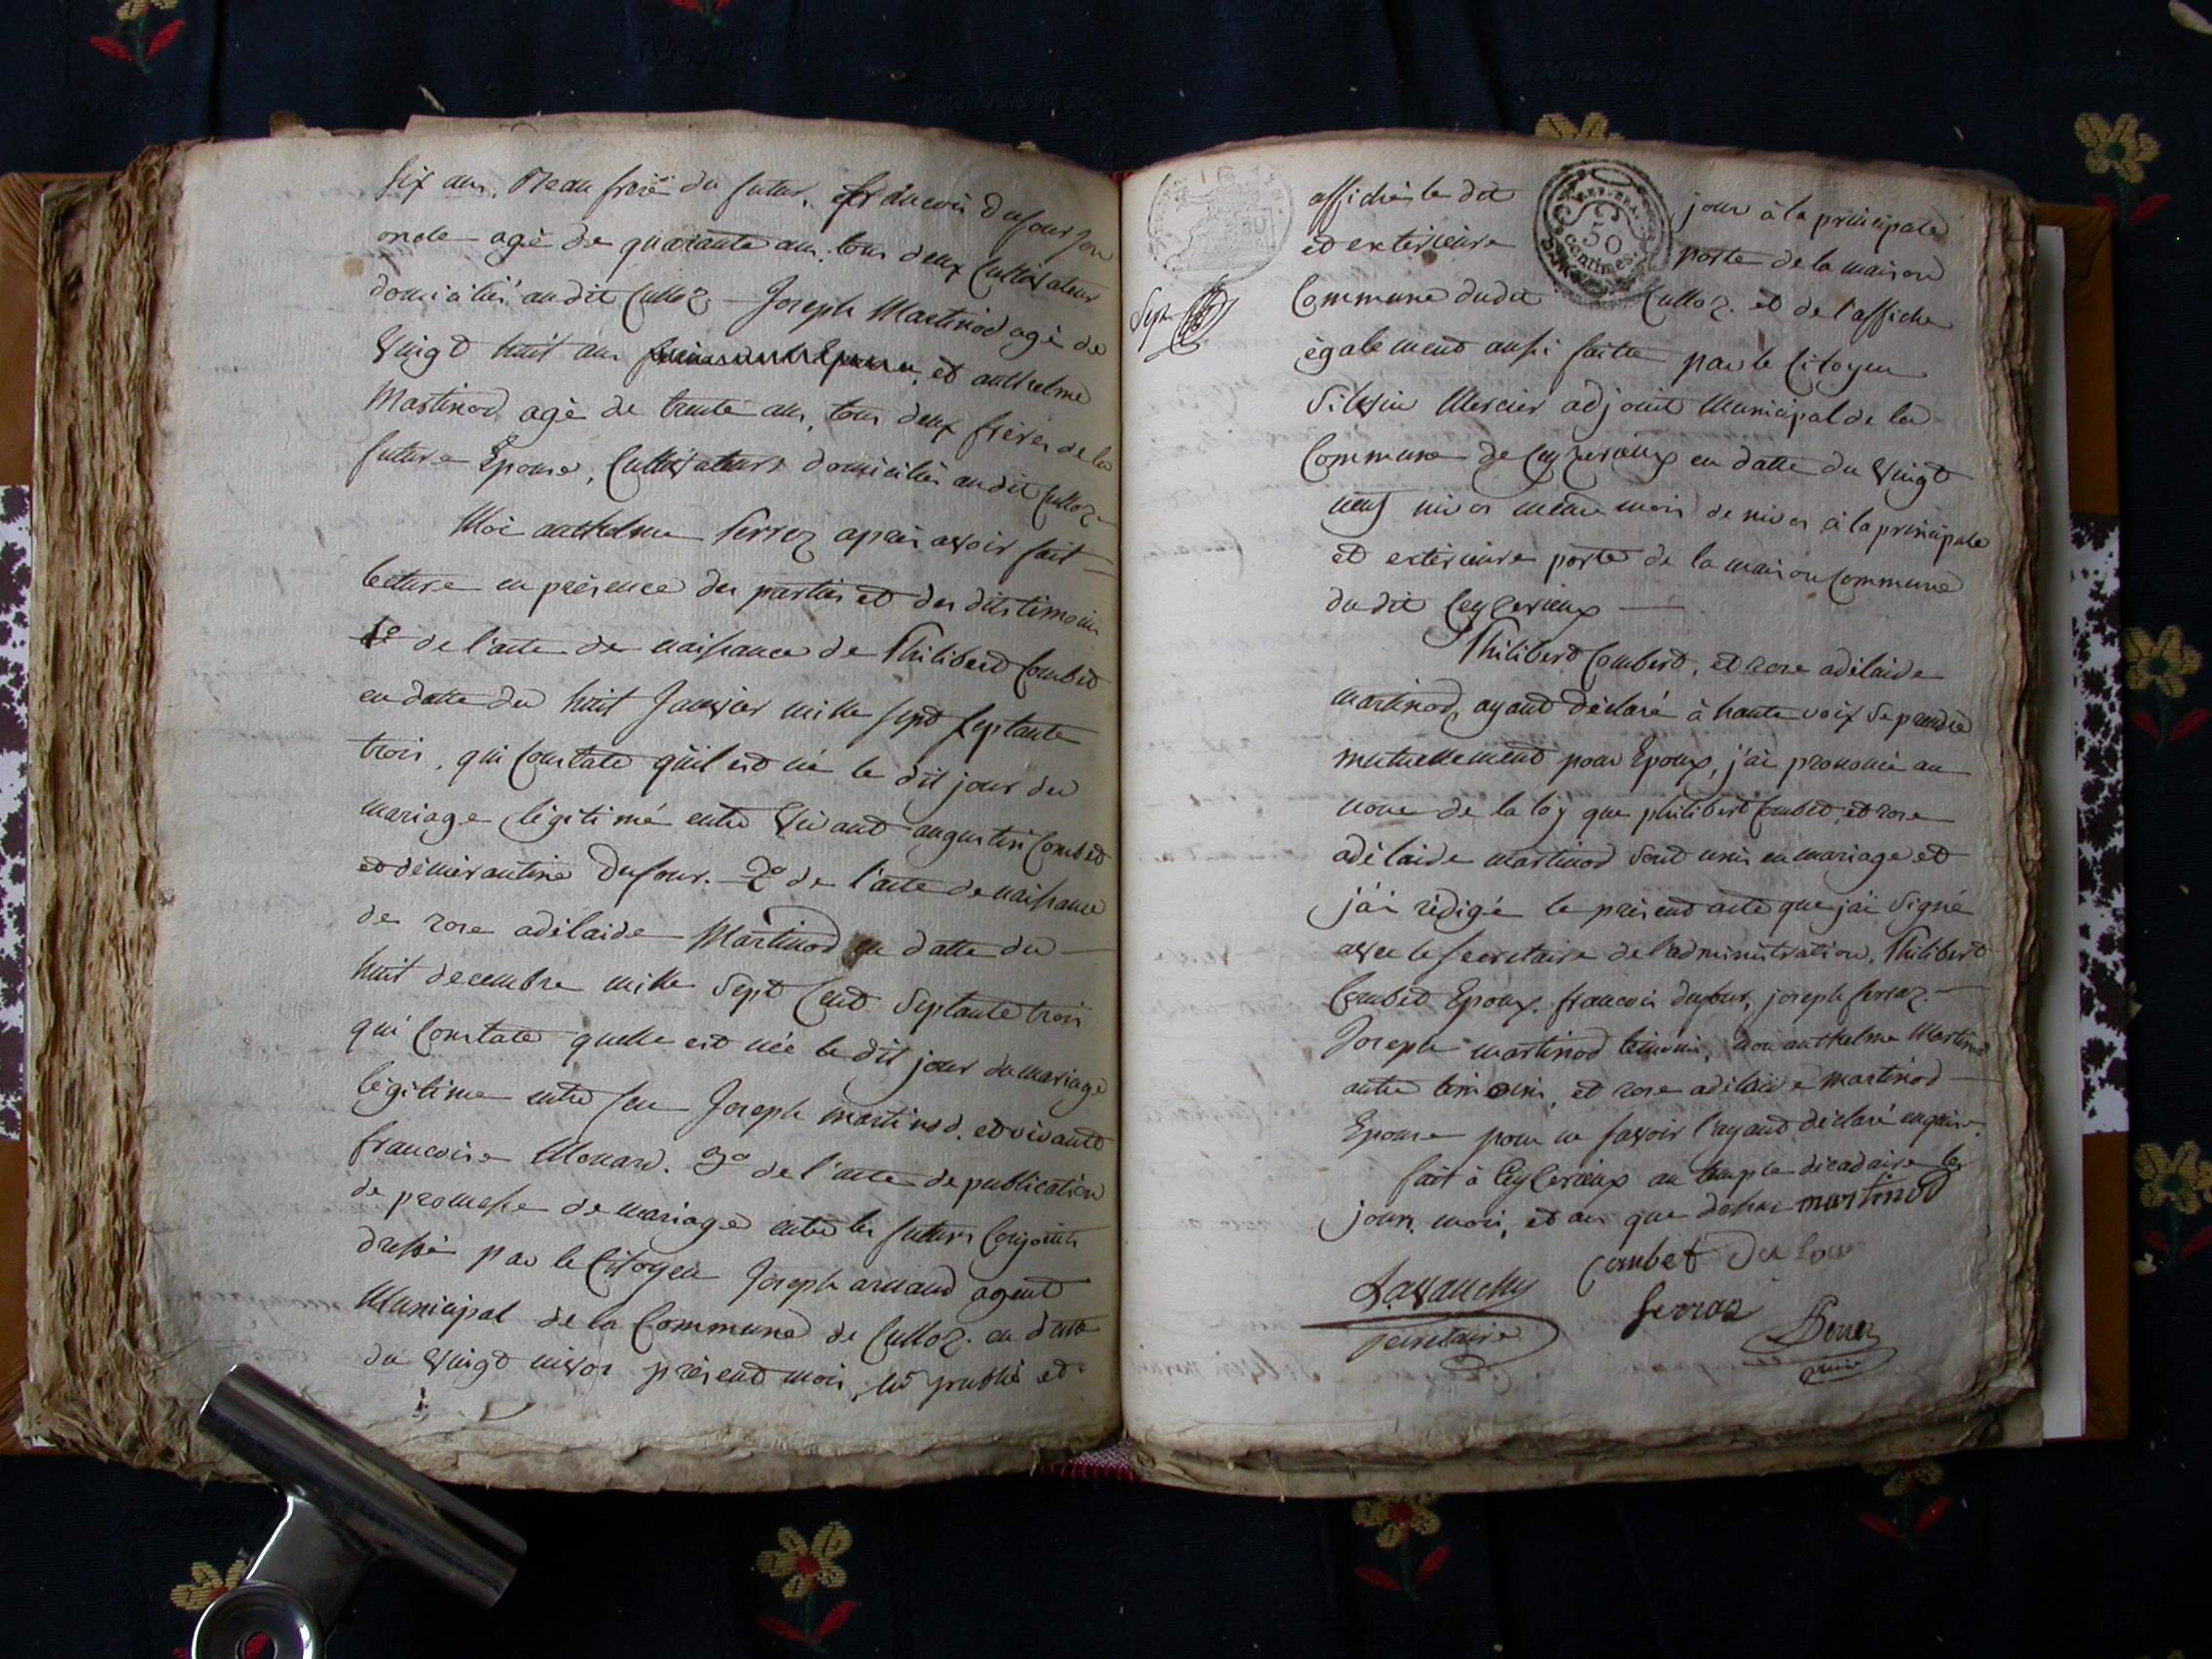 six ans, Beau frere du futur, francois dufour son
oncle agé de quarante ans, tous deux Cultivateurs
domiciliés audit Culloz – Joseph Martinod agé de
Vingt huit ans et anthelme
Martinod agé de trente ans, tous deux frères de la
future Epouse, Cultivateurs domiciliés audit Culloz
Moi anthelme Serroz après avoir fait
lecture en présence des parties et des dits témoins
1o de l'acte de naissance de Philibert Combet
en datte du huit Janvier mille sept septante
trois, qui Constate qu'il est né le dit jour du
mariage légitimé entre Vivant augustin Combet
et Dufour. 2o de l'acte de naissance
de rose adélaide Martinod en datte du
huit decembre mille Sept Cent Septante trois
qui Constate quelle est née le dit jour du mariage
légitime entre feu Joseph martinod, et vivante
francoise Monard. 3o de l'acte de publication
de promesse de mariage entre les futurs Conjoints
dressé par le Citoyen Joseph arnaud agent
Municipal de la Commune de Culloz. en datte
du Vingt nivos présent mois, lu publié et
affichés le dit jour à la principale
et exterieure porte de la maison
Commune dudit Culloz. et de l'affiche
REP. FRA.
50
centimes.
Sept
égalemend aussi faitte par le Citoyen
Silvin Mercier adjoint Municipal de la
Commune de Ceyzerieux en datte du Vingt
neuf nivos même mois de nivos à la principale
et extérieure porte de la maison Commune
du dit Ceyzerieux
Philibert Combert, et rose adélaide
martinod, ayant déclaré à haute voix Se prendre
mutuellement pour Epoux, j'ai prononcé au
nom de la loy que philibert Combet, et rose
adélaide martinod Sont unis en mariage et
j'ai rédigé le présent acte que j'ai Signé
avec le Secretaire de l'administration, Philibert
Combet Epoux. francois dufour, joseph serraz.
Joseph martinod témoins, non anthelme Martinod
autre témoin, et rose adélaide martinod
Epouse pour ne savoir l'ayant déclaré enquis.
fait à Ceyzerieux au temple décadaire les
jour, mois, et an que dessus martinod
Combet Dufour
Lavanchy
Serraz
secretaire